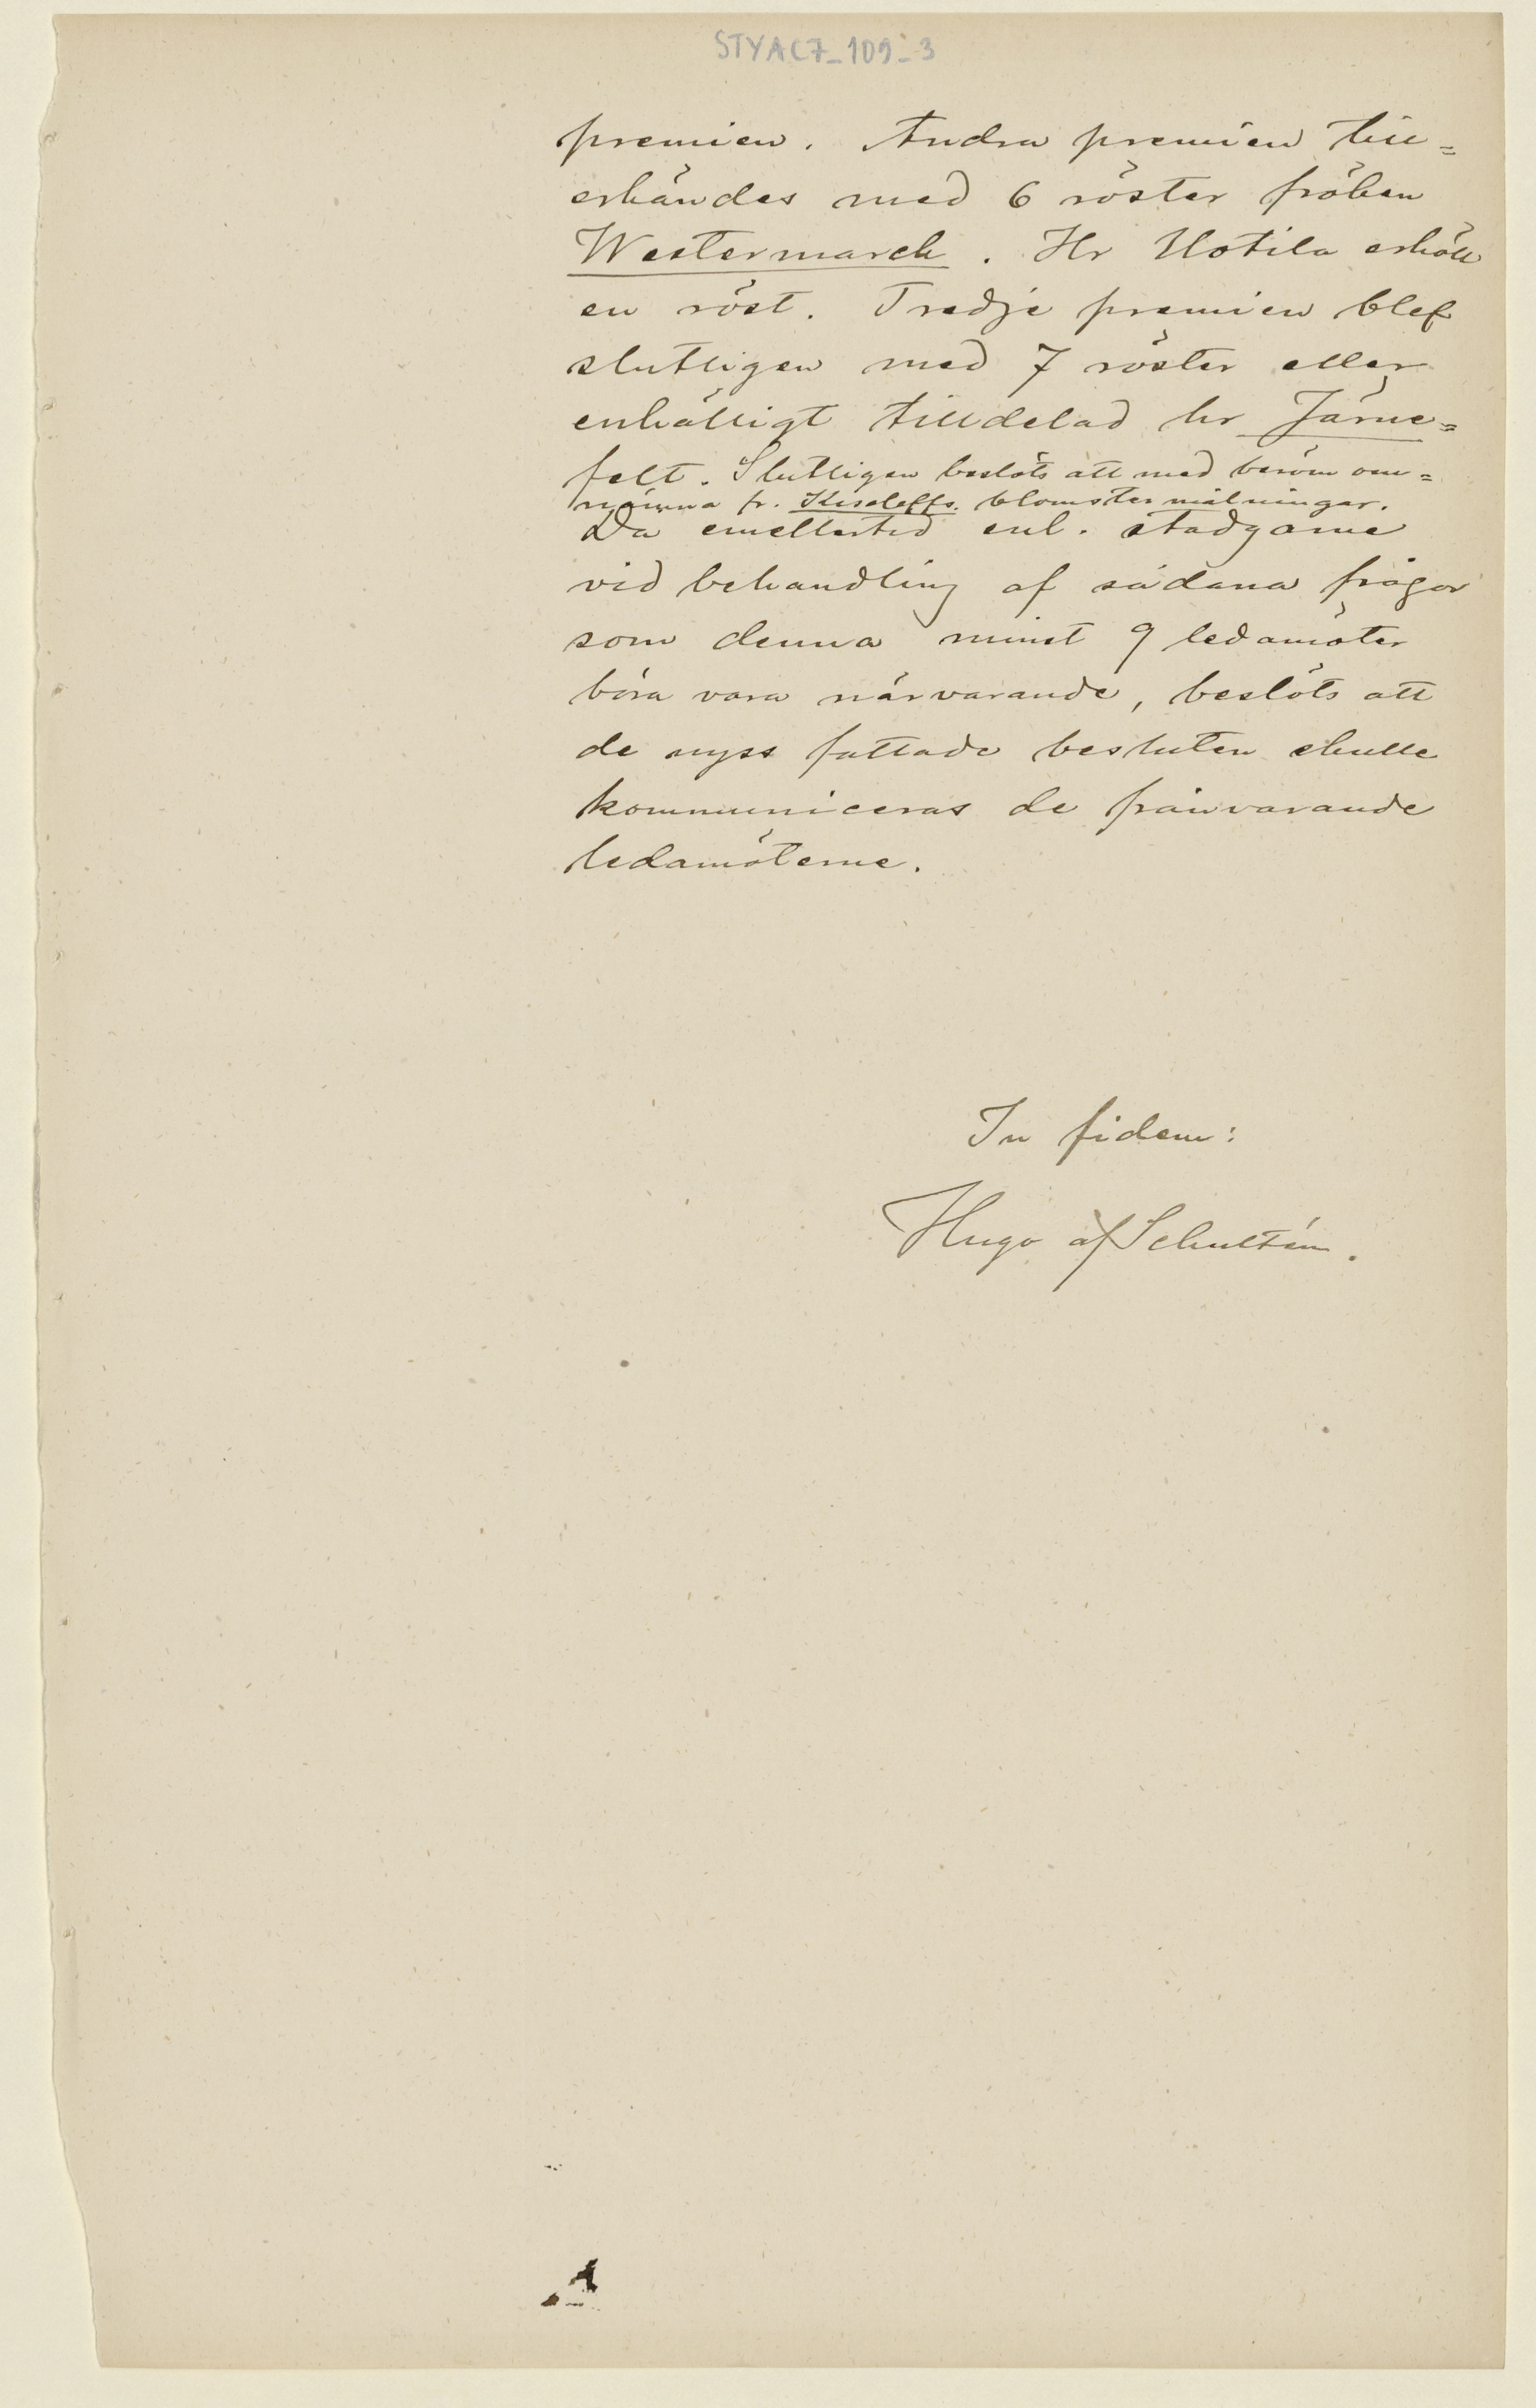 STYAC7_109_3
premien. Andra premien till=
erkändes med 6 röster fröken
Westermarck. Hr Uotila erhöll
en röst. Tredje premien blef
slutligen med 7 röster eller
enhälligt tilldelad hr Järne=
felt. Slutligen beslöts att med beröm om=
nämna fr. Kiseleffs blomstermålningar.
Då emellertid enl. stadgarne
vid behandling af sådana frågor
som denna minst 9 ledamöter
böra vara närvarande, beslöts att
de nyss fattade besluten skulle
kommuniceras de frånvarande
ledamöterne.
In fidem:
Hugo af Schultén.